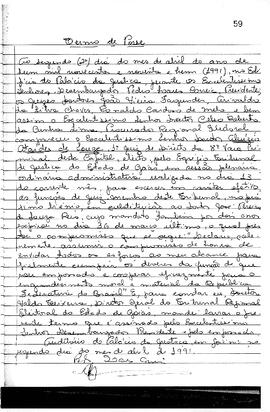 59
Termo de Posse
Ao segundo (2º) dia do mês de abril do ano de
hum mil novecentos e noventa e hum (1991), no Edi
fício do Palácio da Justiça, perante os Excelentíssimos
Senhores Desembargador Pedro Soares Correia, Presidente,
os Juízes Doutores João
da Silva Ronaldo Cardoso de Melo e bem
assim o Excelentíssimo Senhor Doutor Célio Roberto
da Cunha Lima, Procurador Regional Eleitoral,
compareceu o Excelentíssimo Senhor Doutor
de Souza, Juiz de Direito da 8ª Vara Cri
minal desta Capital, eleito pelo Egrégio Tribunal
de Justiça do Estado de Goiás, em sessão plenária
ordinária administrativa realizada no dia
do corrente mês, para exercer em caráter efetivo
as funções de Juiz Membro deste Tribunal, no pró
ximo biênio, em substituição ao Doutor
de Souza Reis, cujo mandato também por dois anos
expirou no dia 26 de março último, o qual pres
tou o compromisso que se segue: "Declaro, sole
nemente, assumir o compromisso de honra de
envidar todos os esforços ao meu alcance para
fielmente cumprir os deveres da função de que
sou empossado e cooperar eficazmente para o
engrandecimento moral e material da República
Federativa do Brasil". E, para constar, eu, Doutor
Teixeira, Diretor Geral do Tribunal Regional
Eleitoral do Estado de Goiás, mandei lavrar o pre
sente termo que é assinado pelo Excelentíssimo
Senhor Desembargador Presidente e pelo empossado.
Auditório do Palácio da Justiça em Goiânia, no
segundo dia do mês de abril de 1991.